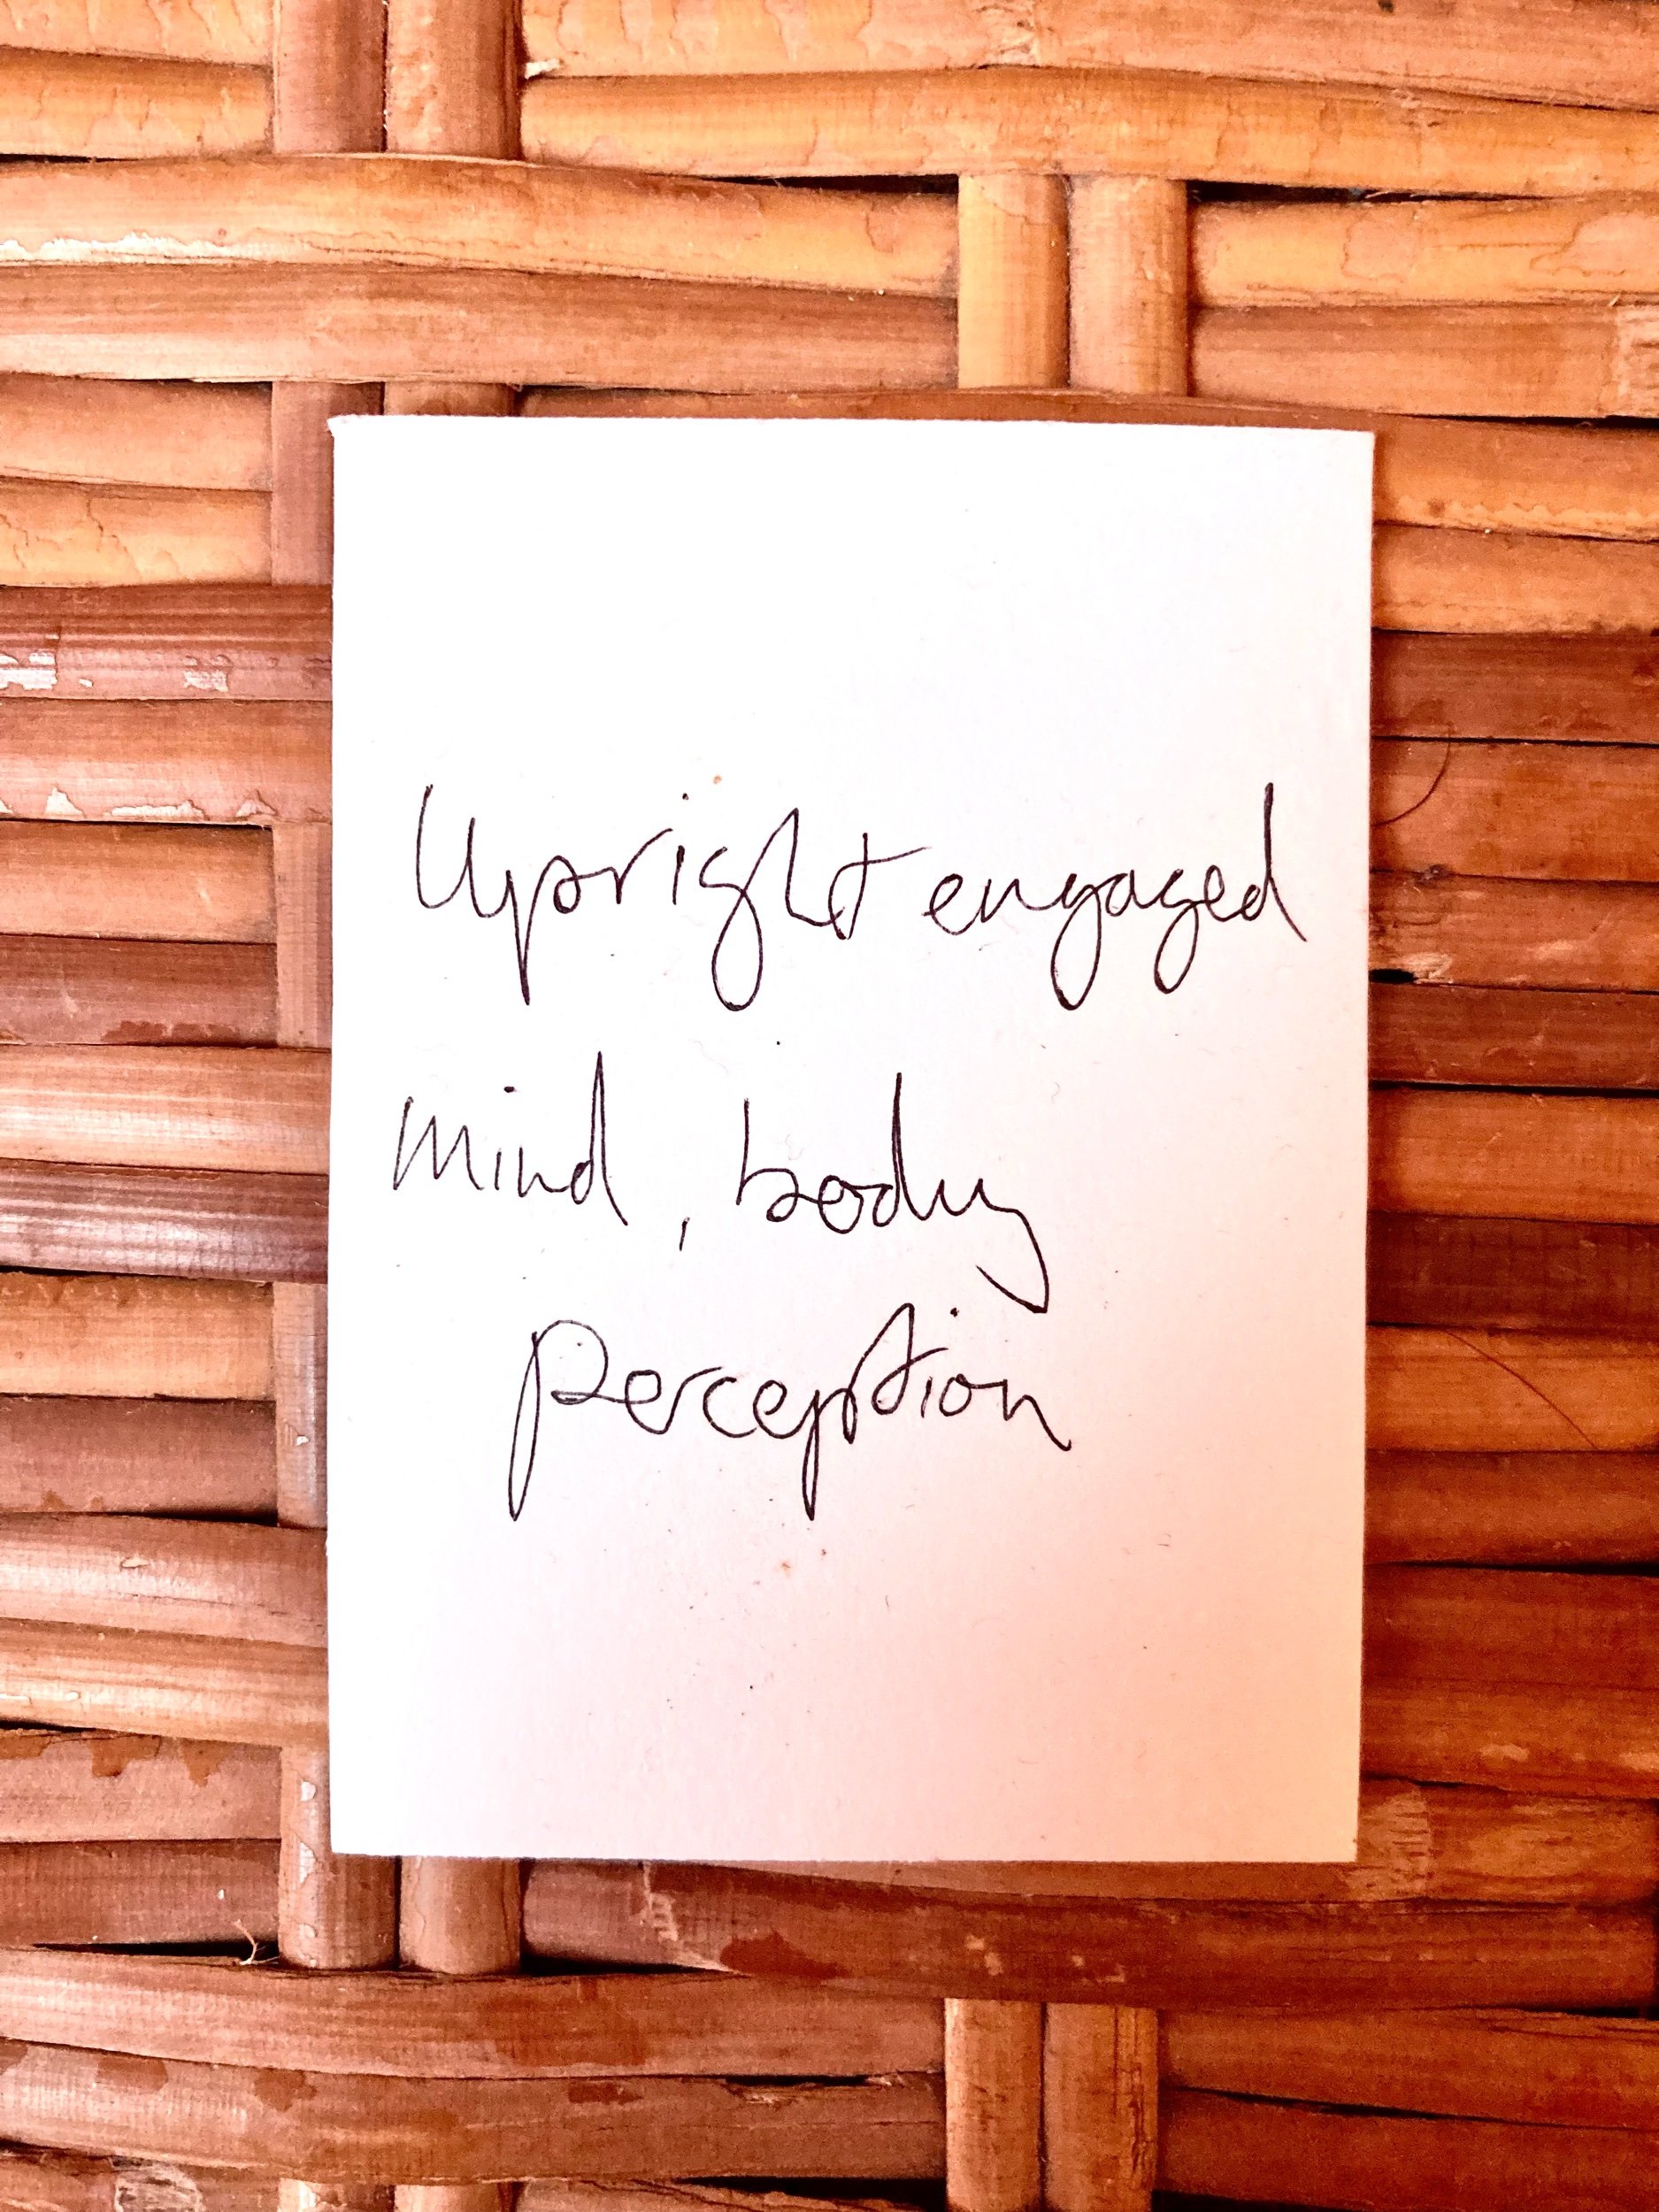 Upright engaged
mind, body
perception